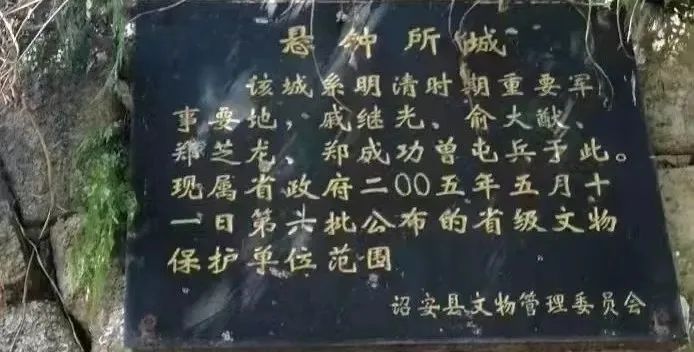 悬钟所城
该城系明清时期重要军
事要地，戚继光、俞大猷、
郑芝龙、郑成功曾屯兵于此。
现属省政府二〇〇五年五月十
一日第六批公布的省级文物
保护单位范围
诏安县文物管理委员会